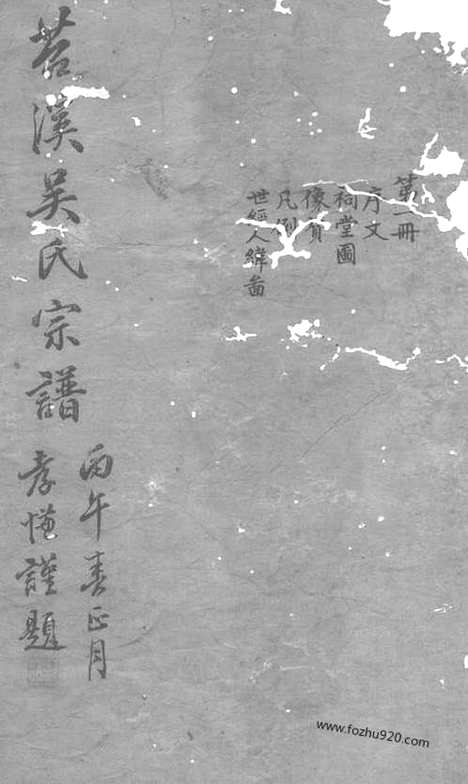 第一冊
序文
祠堂圖
像贊
凡例
世經人緯啚
苕溪吴氏宗譜
丙午春正月
孝慥謹題
www.fozhu920.com